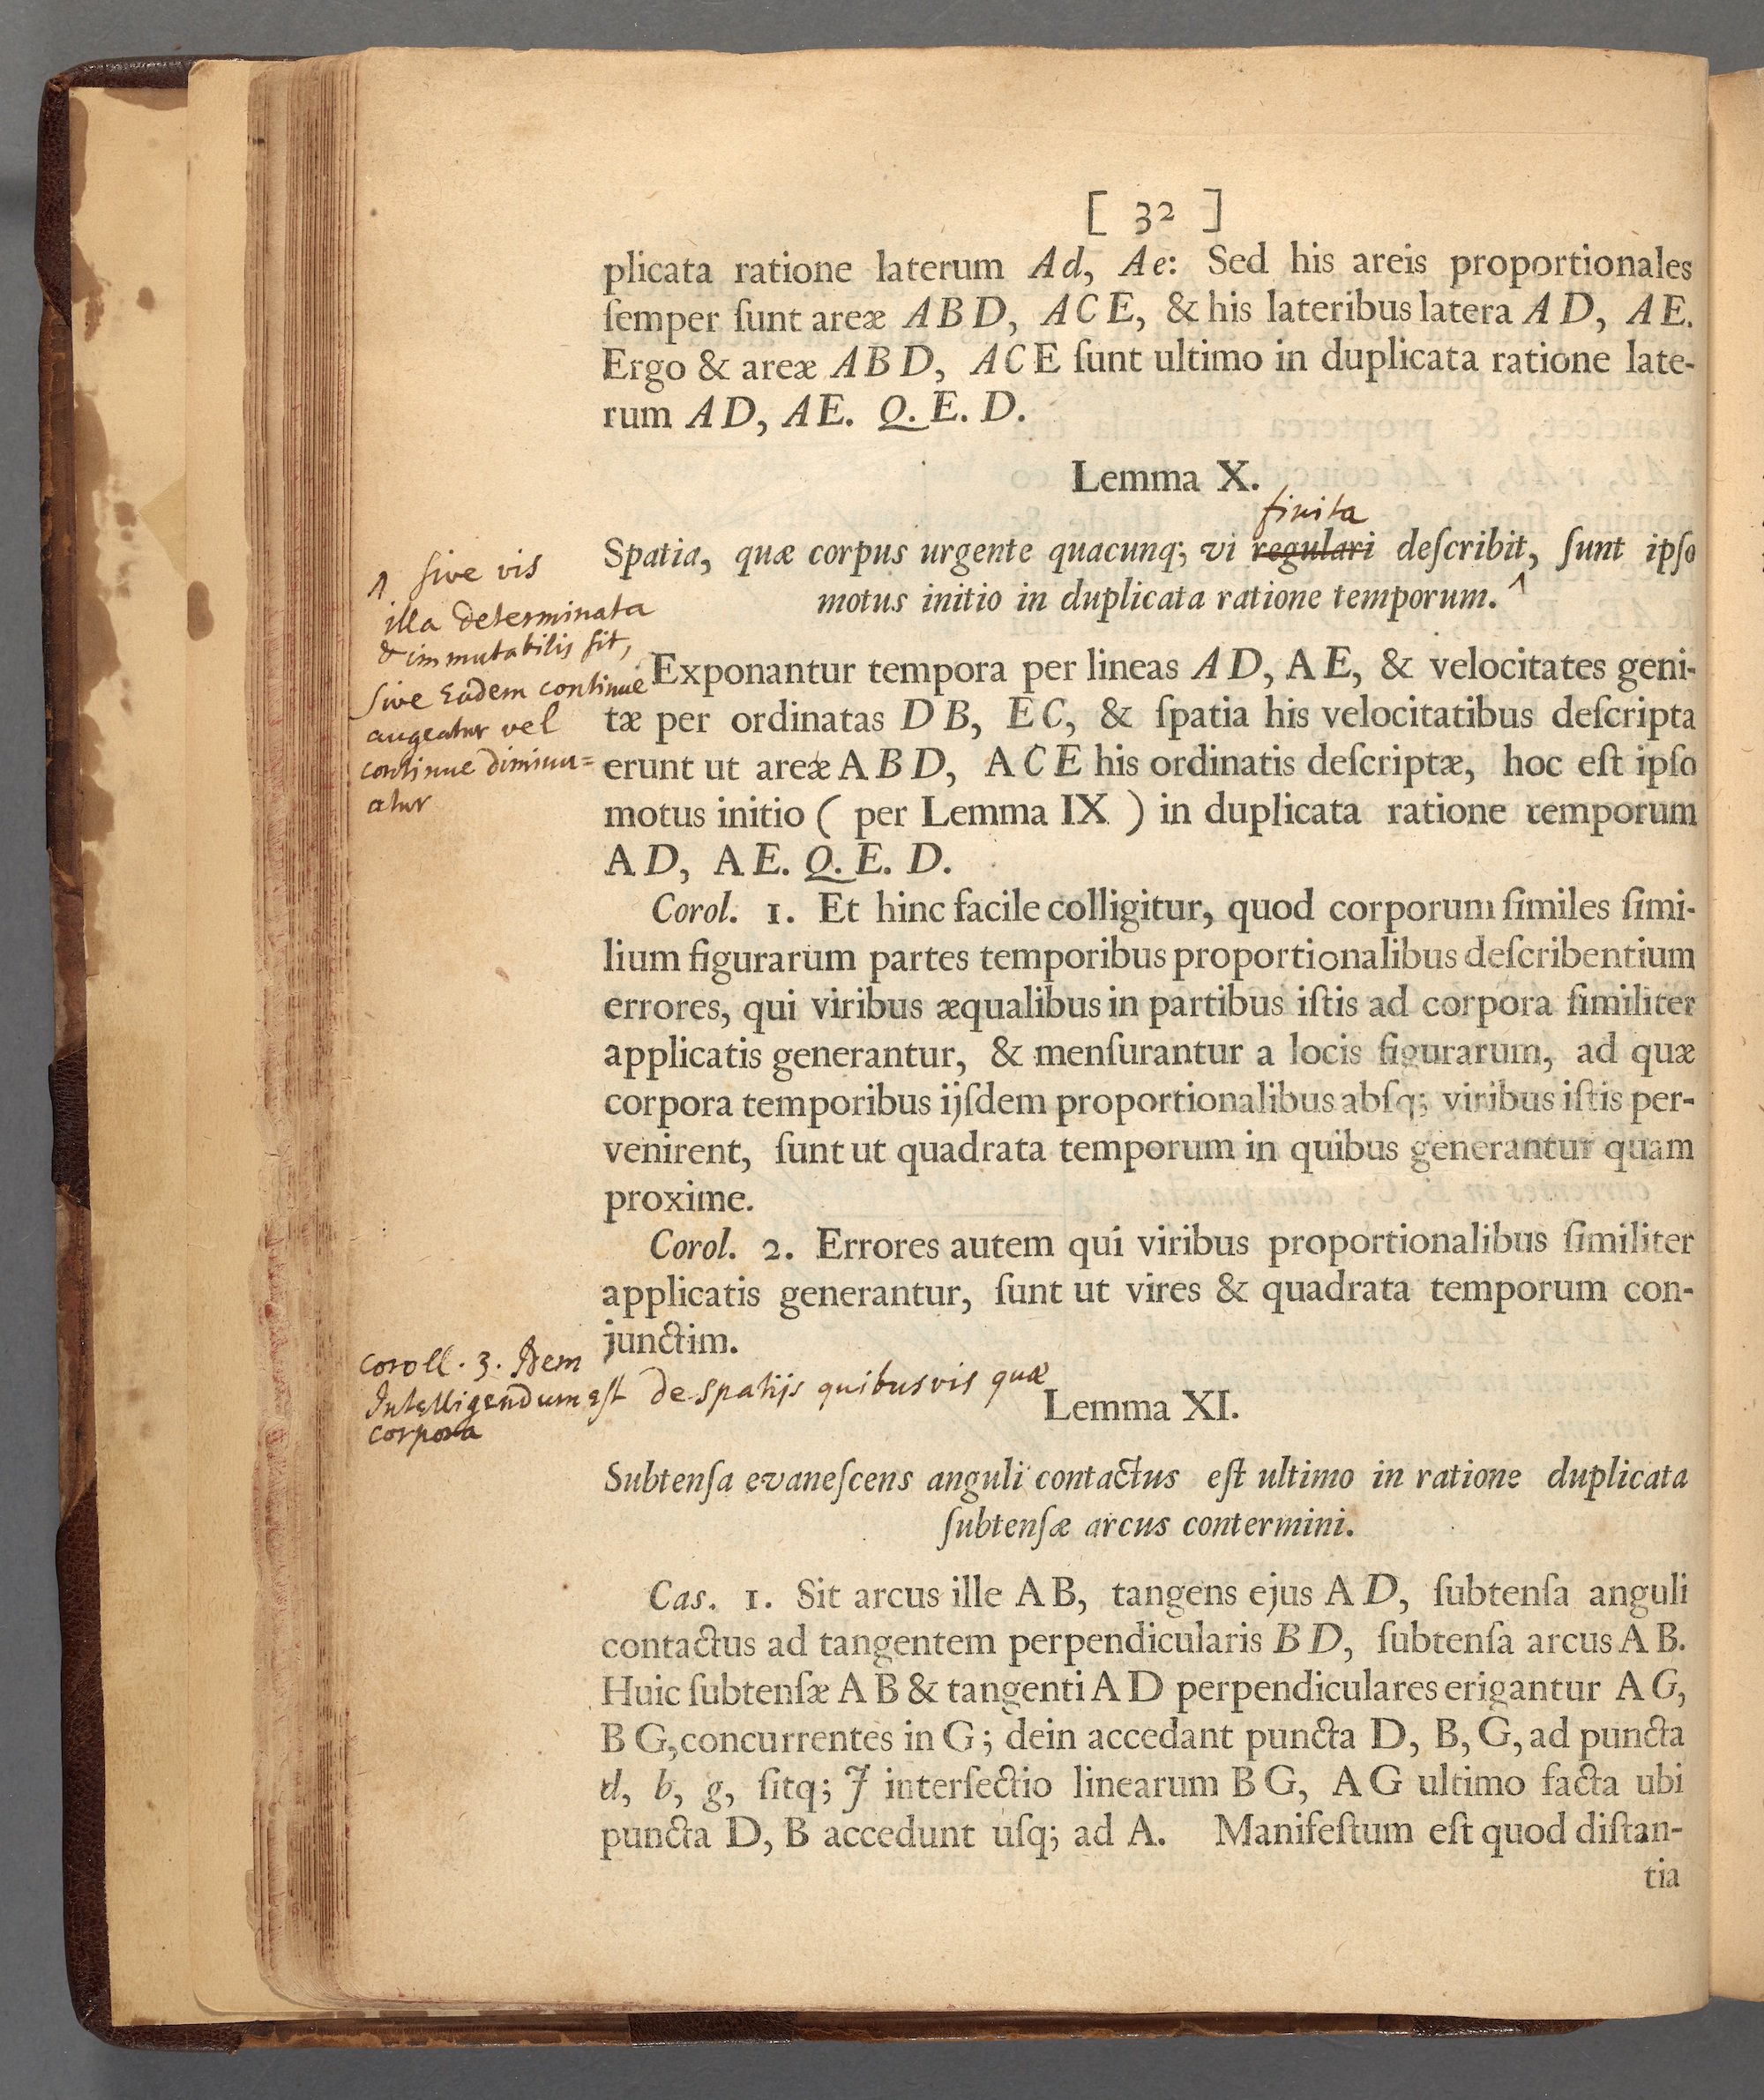 [ 32 ]
plicata ratione laterum Ad, Ae: Sed his areis proportionales
ſemper ſunt areæ ABD, ACE, & his lateribus latera AD, AE.
Ergo & areæ ABD, ACE ſunt ultimo in duplicata ratione late-
rum AD, AE. Q. E. D.
Lemma X.
finita
Spatia, quæ corpus urgente quacunq; vi regulari deſcribit, ſunt ipſo
motus initio in duplicata ratione temporum. ^
^ sive vis
illa determinata
& immutabilis sit,
sive Eadem continue
augeatur vel
continue diminu=
atur
Exponantur tempora per lineas AD, AE, & velocitates geni-
tæ per ordinatas DB, EC, & ſpatia his velocitatibus deſcripta
erunt ut areæ ABD, ACE his ordinatis deſcriptæ, hoc eſt ipſo
motus initio ( per Lemma IX ) in duplicata ratione temporum
AD, AE. Q. E. D.
Corol. 1. Et hinc facile colligitur, quod corporum ſimiles ſimi-
lium figurarum partes temporibus proportionalibus deſcribentium
errores, qui viribus æqualibus in partibus iſtis ad corpora ſimiliter
applicatis generantur, & menſurantur a locis figurarum, ad quæ
corpora temporibus ijſdem proportionalibus abſq; viribus iſtis per-
venirent, ſunt ut quadrata temporum in quibus generantur quam
proxime.
Corol. 2. Errores autem qui viribus proportionalibus ſimiliter
applicatis generantur, ſunt ut vires & quadrata temporum con-
junctim.
Coroll. 3. Idem
Intelligendum est de spatijs quibusvis quæ
corpora
Lemma XI.
Subtenſa evaneſcens anguli contactus eſt ultimo in ratione duplicata
ſubtenſæ arcus contermini.
Cas. 1. Sit arcus ille AB, tangens ejus AD, ſubtenſa anguli
contactus ad tangentem perpendicularis BD, ſubtenſa arcus AB.
Huic ſubtenſæ AB & tangenti AD perpendiculares erigantur AG,
BG, concurrentes in G; dein accedant puncta D, B, G, ad puncta
d, b, g, ſitq; J interſectio linearum BG, AG ultimo facta ubi
puncta D, B accedunt uſq; ad A. Manifeſtum eſt quod diſtan-
tia